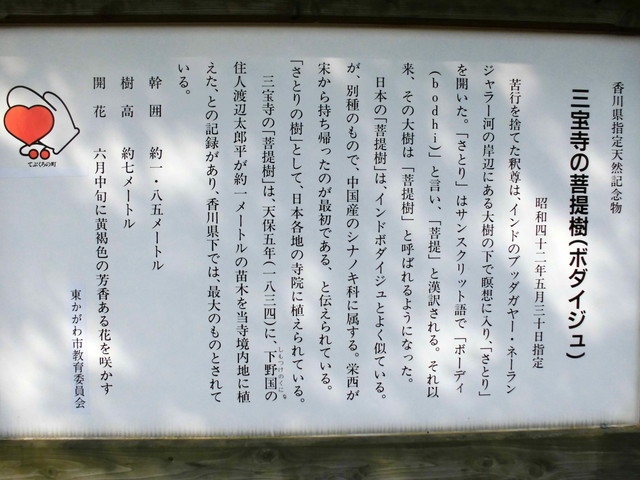 香川県指定天然記念物
三宝寺の菩提樹(ボダイジュ)
昭和四十二年五月三十日指定
苦行を捨てた釈尊は、インドのブッダガヤー・ネーラン
ジャラー河の岸辺にある大樹の下で瞑想に入り、「さとり」
を開いた。「さとり」はサンスクリット語で「ボーディ
(bodhi)」と言い、「菩提」と漢訳される。それ以
来、その大樹は「菩提樹」と呼ばれるようになった。
日本の「菩提樹」は、インドボダイジュとよく似ている。
が、別種のもので、中国産のシナノキ科に属する。栄西が
宋から持ち帰ったのが最初である、と伝えられている。
「さとりの樹」として、日本各地の寺院に植えられている。
三宝寺の「菩提樹」は、天保五年(一八三四)に、下野国の
しもつけのくに
住人渡辺太郎平が約一メートルの苗木を当寺境内地に植
えた、との記録があり、香川県下では、最大のものとされて
いる。
幹囲 約一・八五メートル
樹高 約七メートル
開花 六月中旬に黄褐色の芳香ある花を咲かす
東かがわ市教育委員会
てぶくろの町